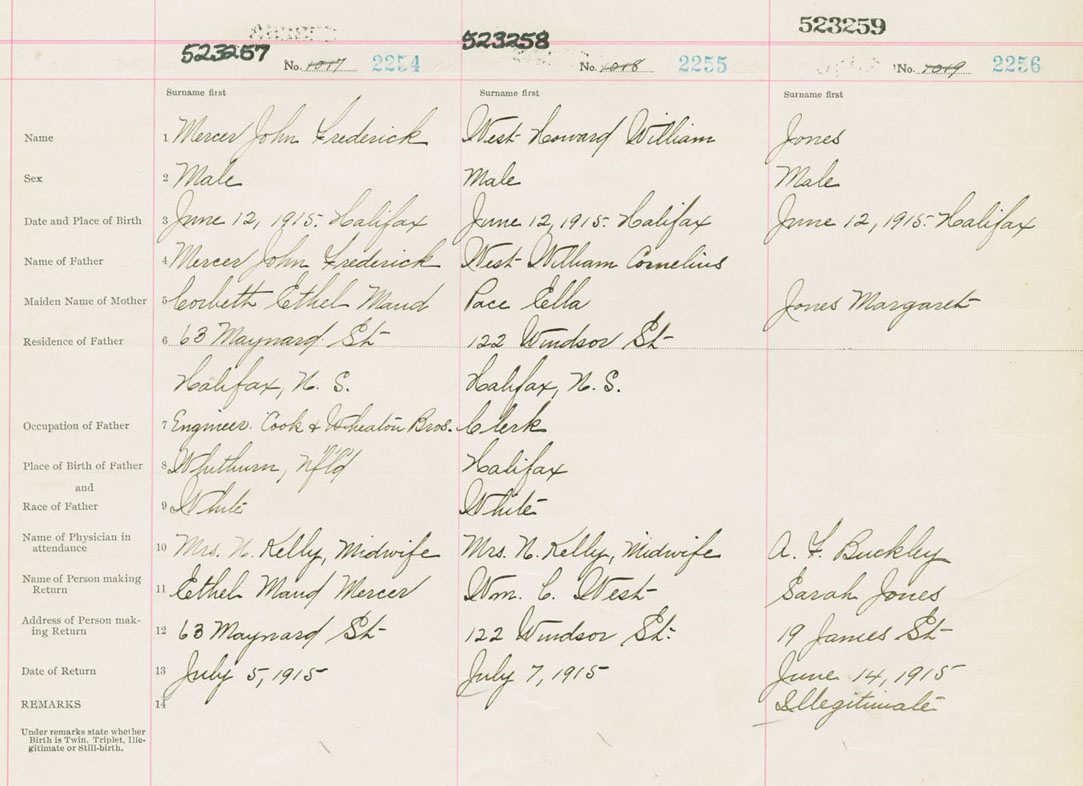 523257 523258 523259
No. 1017 2254 No. 1018 2255 No. 1019 2256
Surname first Surname first Surname first
Name 1 Mercer John Frederick West Howard William Jones
Sex 2 Male Male Male
Date and Place of Birth 3 June 12, 1915. Halifax June 12, 1915. Halifax June 12, 1915. Halifax
Name of Father 4 Mercer John Frederick West William Cornelius
Maiden Name of Mother 5 Corbett Ethel Maud Pace Ella Jones Margaret
Residence of Father 6 63 Maynard St 122 Windsor St
Halifax, N. S. Halifax, N. S.
Occupation of Father 7 Engineer. Cook & Wheaton Bros. Clerk
Place of Birth of Father 8 Whitburn, Nfld Halifax
and
Race of Father 9 White White
Name of Physician in
attendance 10 Mrs. N. Kelly, Midwife Mrs. N. Kelly, Midwife A. F. Buckley
Name of Person making
Return 11 Ethel Maud Mercer Wm. C. West Sarah Jones
Address of Person mak-
ing Return 12 63 Maynard St 122 Windsor St. 19 James St
Date of Return 13 July 5, 1915 July 7, 1915 June 14, 1915
REMARKS 14 Illegitimate
Under remarks state whether
Birth is Twin, Triplet, Ille-
gitimate or Still-birth.